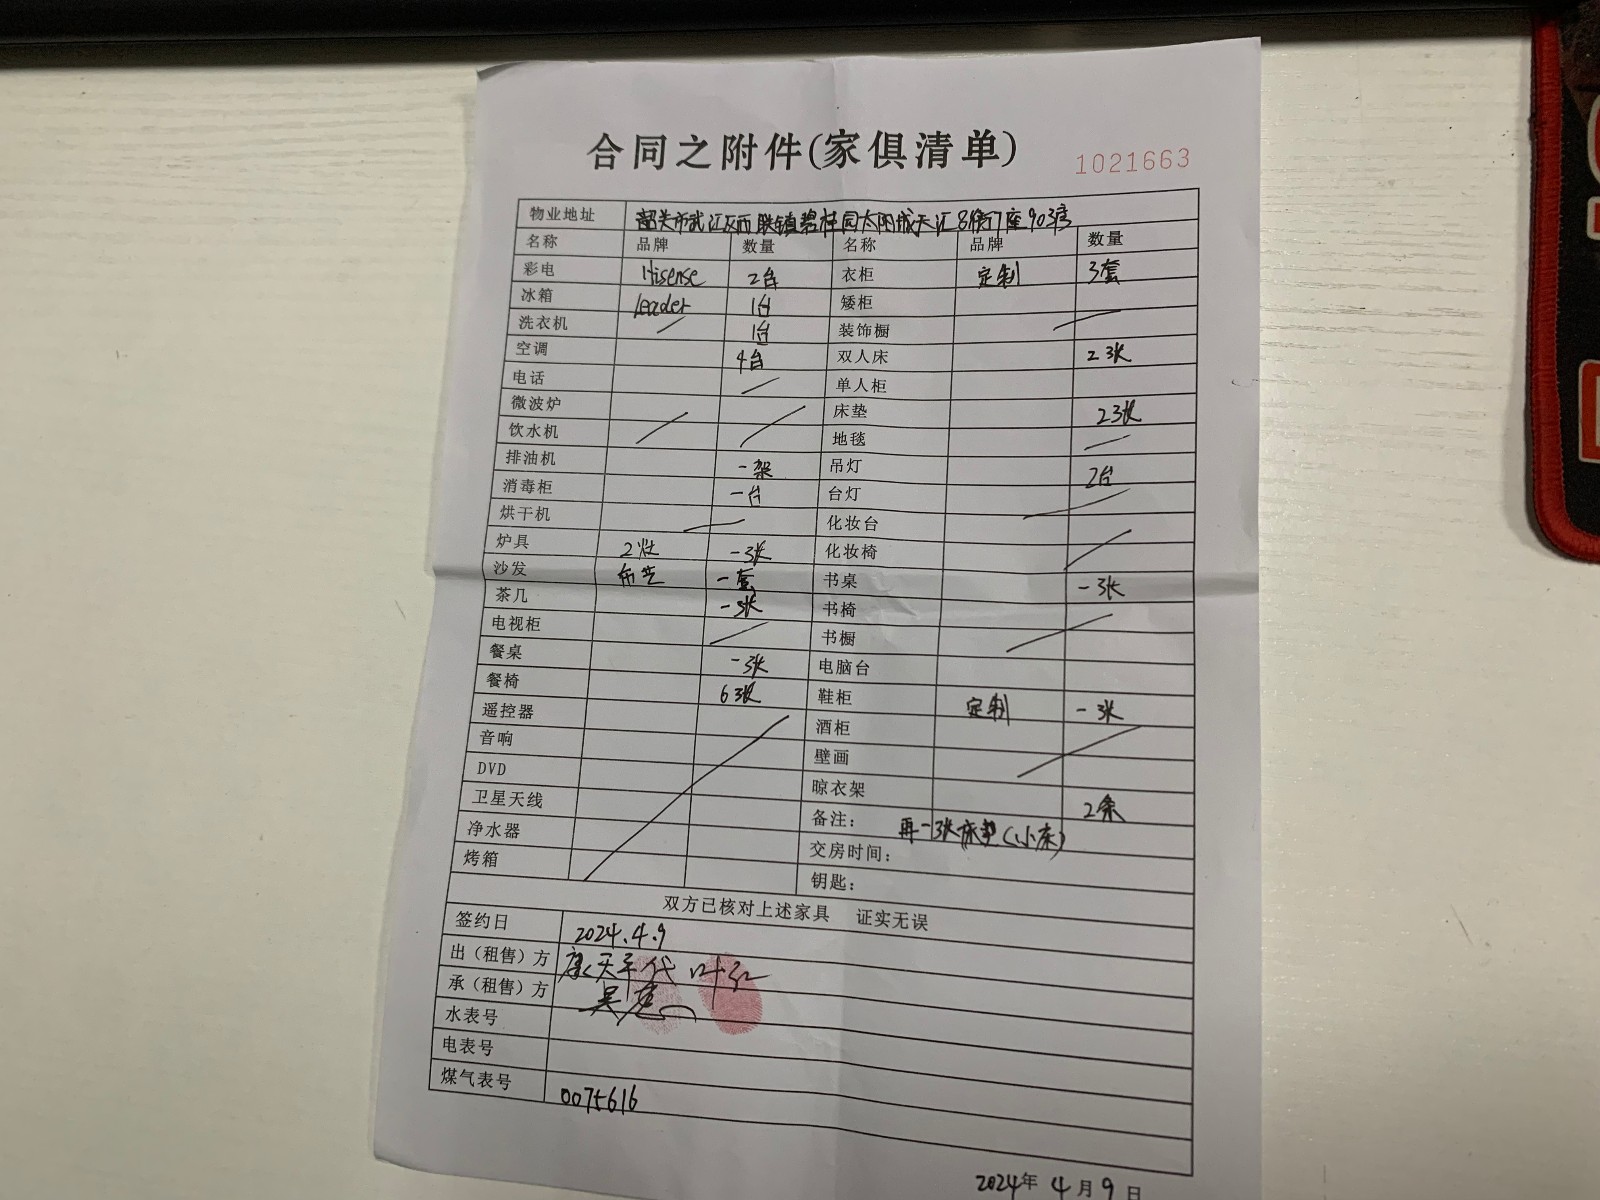 合同之附件(家俱清单)
1021663
物业地址 韶关市武江区西联镇碧桂园太阳城天汇8街7座903房
名称 品牌 数量 名称 品牌 数量
彩电 Hisense 2台 衣柜 定制 3套
冰箱 Leader 1台 矮柜
洗衣机 1台 装饰橱
空调 4台 双人床 2张
电话 单人柜
微波炉 床垫 2张
饮水机 地毯
排油机 一架 吊灯 2台
消毒柜 一台 台灯
烘干机 化妆台
炉具 2灶 一张 化妆椅
沙发 布艺 一套 书桌 一张
茶几 一张 书椅
电视柜 书橱
餐桌 一张 电脑台
餐椅 6张 鞋柜 定制 一张
遥控器 酒柜
音响 壁画
DVD 晾衣架 2条
卫星天线 备注: 再一张床垫(小床)
净水器 交房时间:
烤箱 钥匙:
双方已核对上述家具 证实无误
签约日 2024.4.9
出(租售)方 代 叶红
承(租售)方 吴
水表号
电表号
煤气表号 0075616
2024年 4月 9日